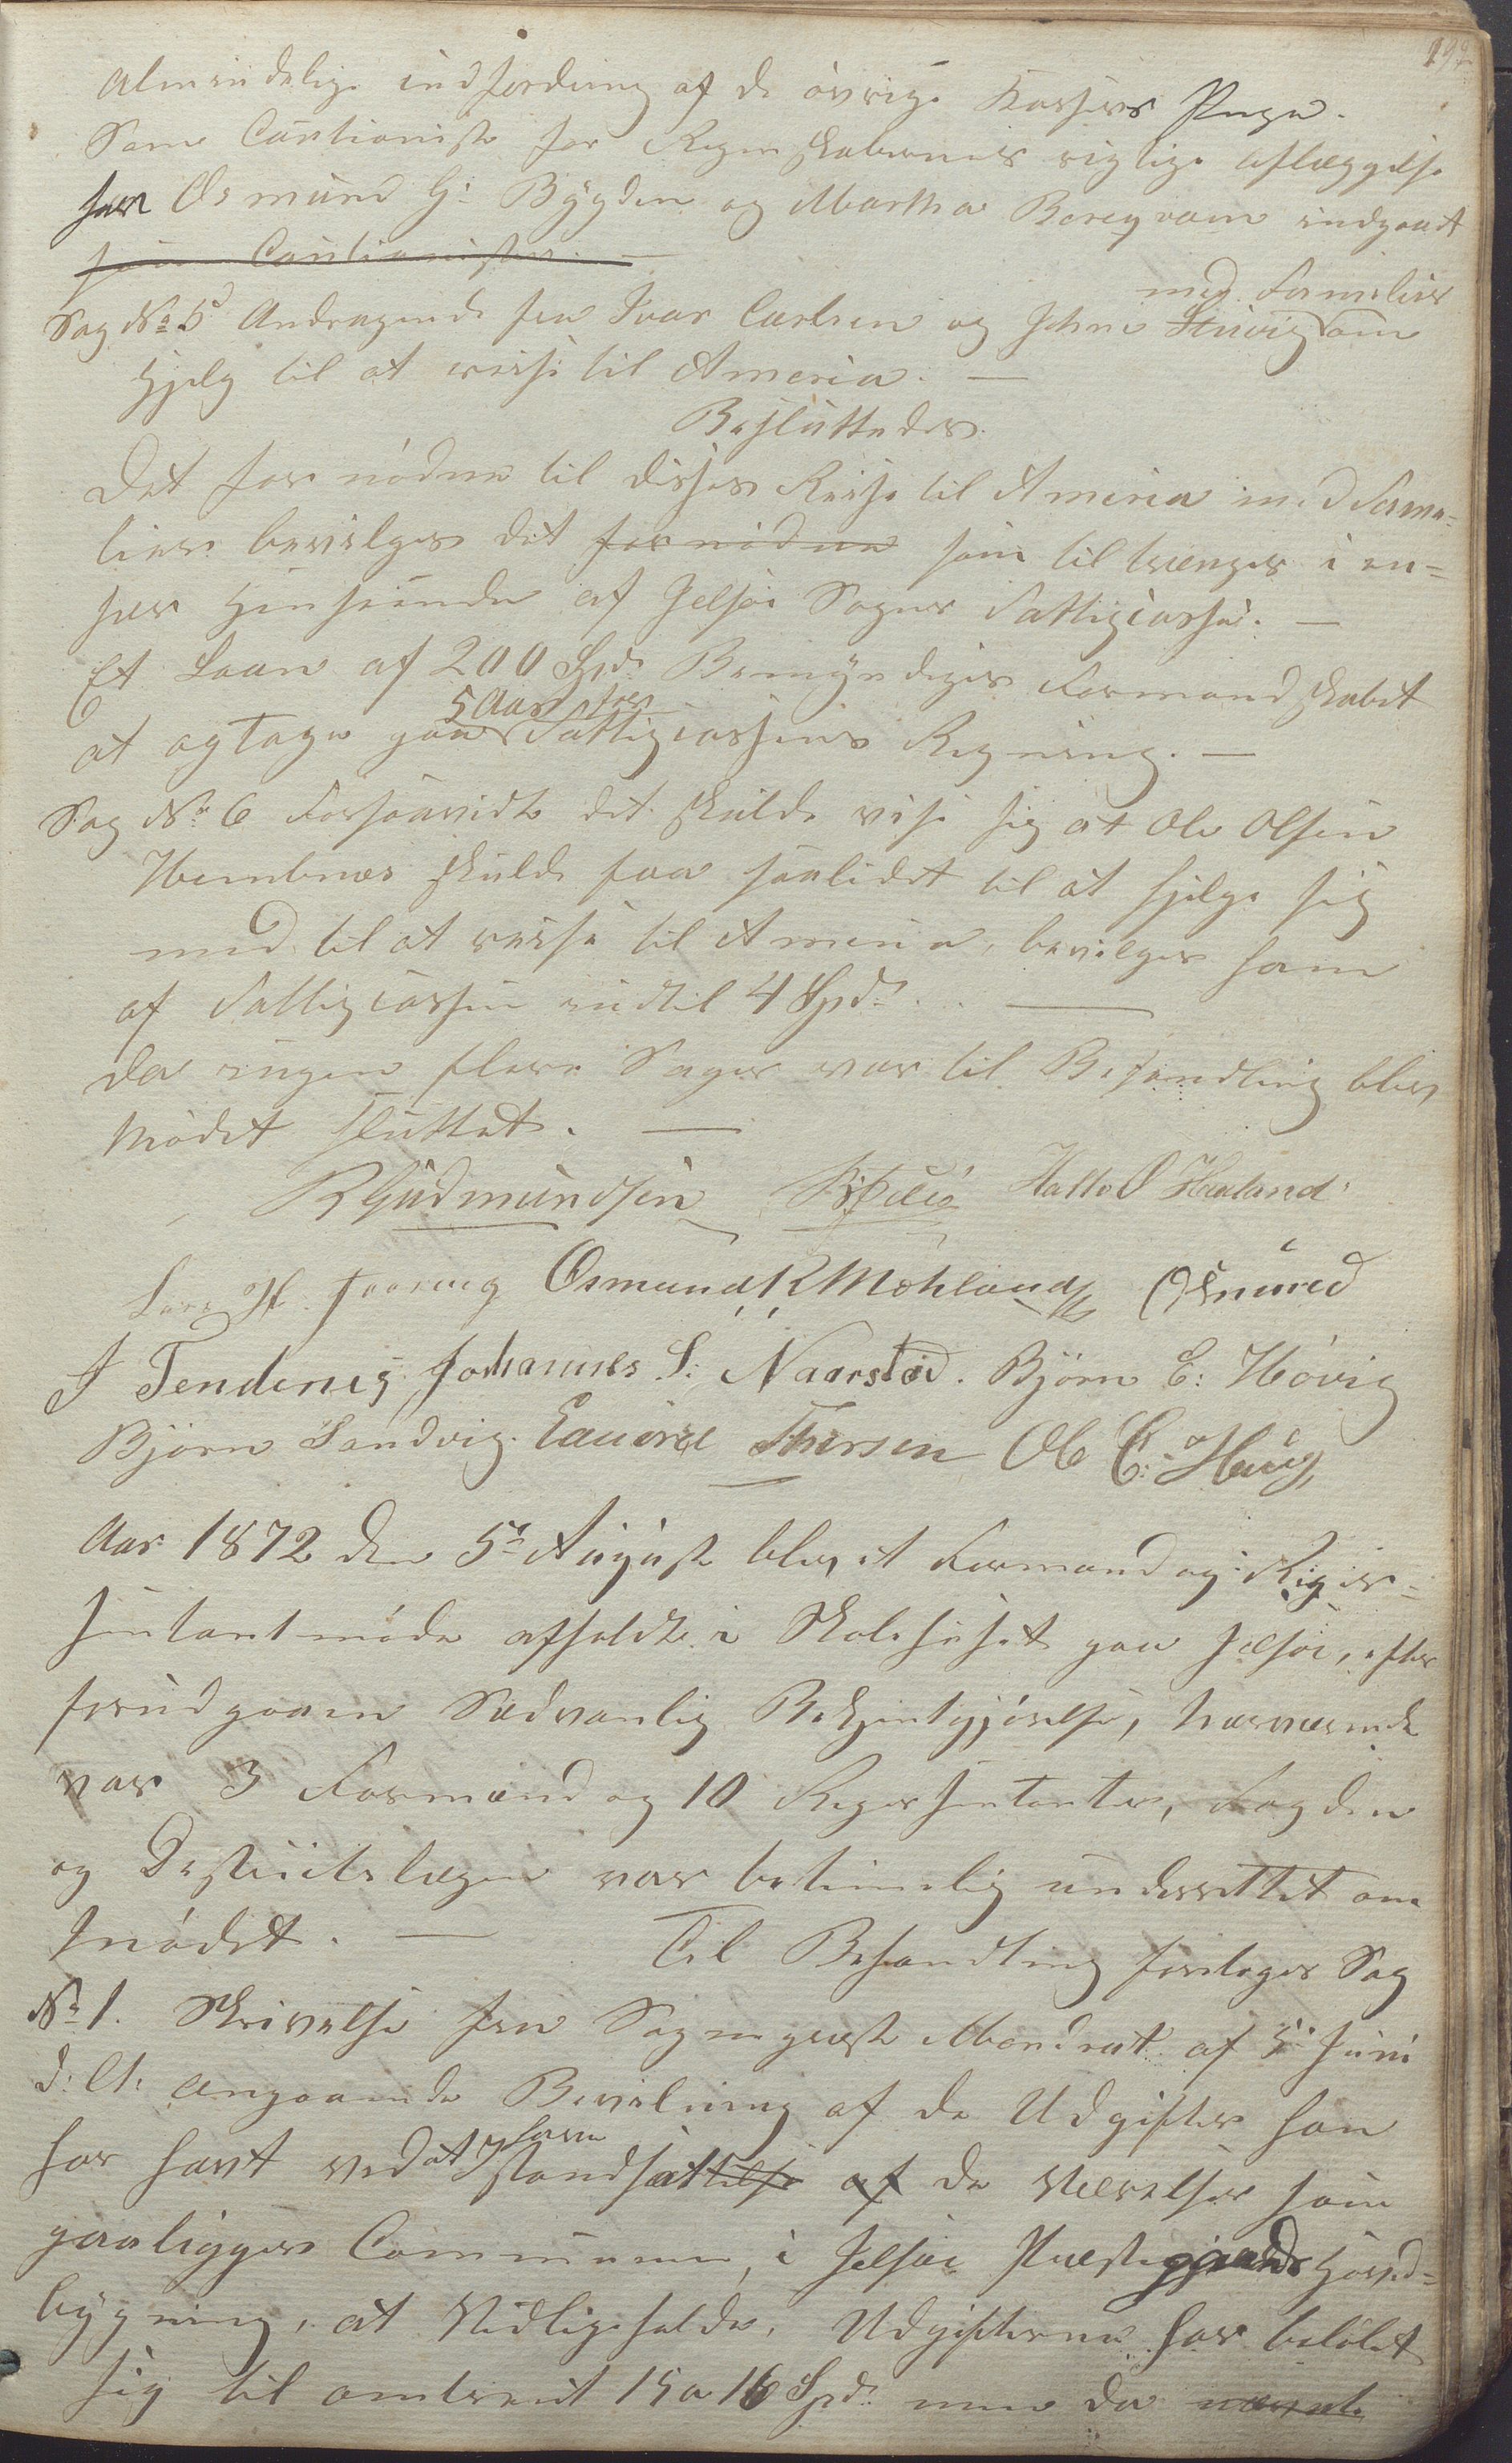 almindelige indfordring af de øvrige Kassers Penge.
Som Cautionister for Regnskabernes rigtige aflæggelse
har Osmund G: Bygden og Martha Bereqvam indgaaet
som Cautionister. —
med Familier
Sag No 5 Andragende fra Ivar Carlsen og John Stuvig om
Hjelp til at reise til America. —
Besluttedes.
Det fornødne til disses Reise til America med Fami-
lier bevilges det fornødne som tiltrænges i en-
hver Henseende af Jelsøe Sogns Fattigcasse. —
Et Laan af 200 Spd. Bemyndiges Formandskabet
5 Aar for
at optage paa Fattigcassens Regning. —
Sag No 6 Forsaavidt det skulde vise sig at Ole Olsen
Hembnes skulde faa saalidet til at hjelpe sig
med til at reise til America, bevilges ham
af Fattigcassen indtil 4 Spd. —
Da ingen flere Sager var til Behandling blev
Mødet sluttet. —
R Gudmundsen Hallo O Hauland
Lars H. Foering Osmund R Mehland Osmund
J Tendenes Johannes S: Naarstad. Bjørn E: Høvig
Bjørn Sandvig. Edvard Thorsen Ole C: Haug
Aar 1872 den 5te August blev et Formand og Repre-
sentantmøde afholdt i Skolehuset paa Jelsøe, efter
forudgaaen Sædvanlig Bekjentgjørelse, nærværende
var 3 Formænd og 10 Representanter, Fogden
og Destrictslægen var betimelig underrettet om
Mødet. — Til Behandling foretoges Sag
No 1. Skrivelse fra Sognepræst Mandrut af 5 Juni
d: A: angaaende Bevilning af de Udgifter han
have
har havt ved at Istandsættelse af de Værelser som
paaligger Communen, i Jelsøe Præstegjælds Hoved-
bygning, at Vedligeholde. Udgifterne har beløbet
sig til omtrent 15 a 16 Spd. men da nævnte